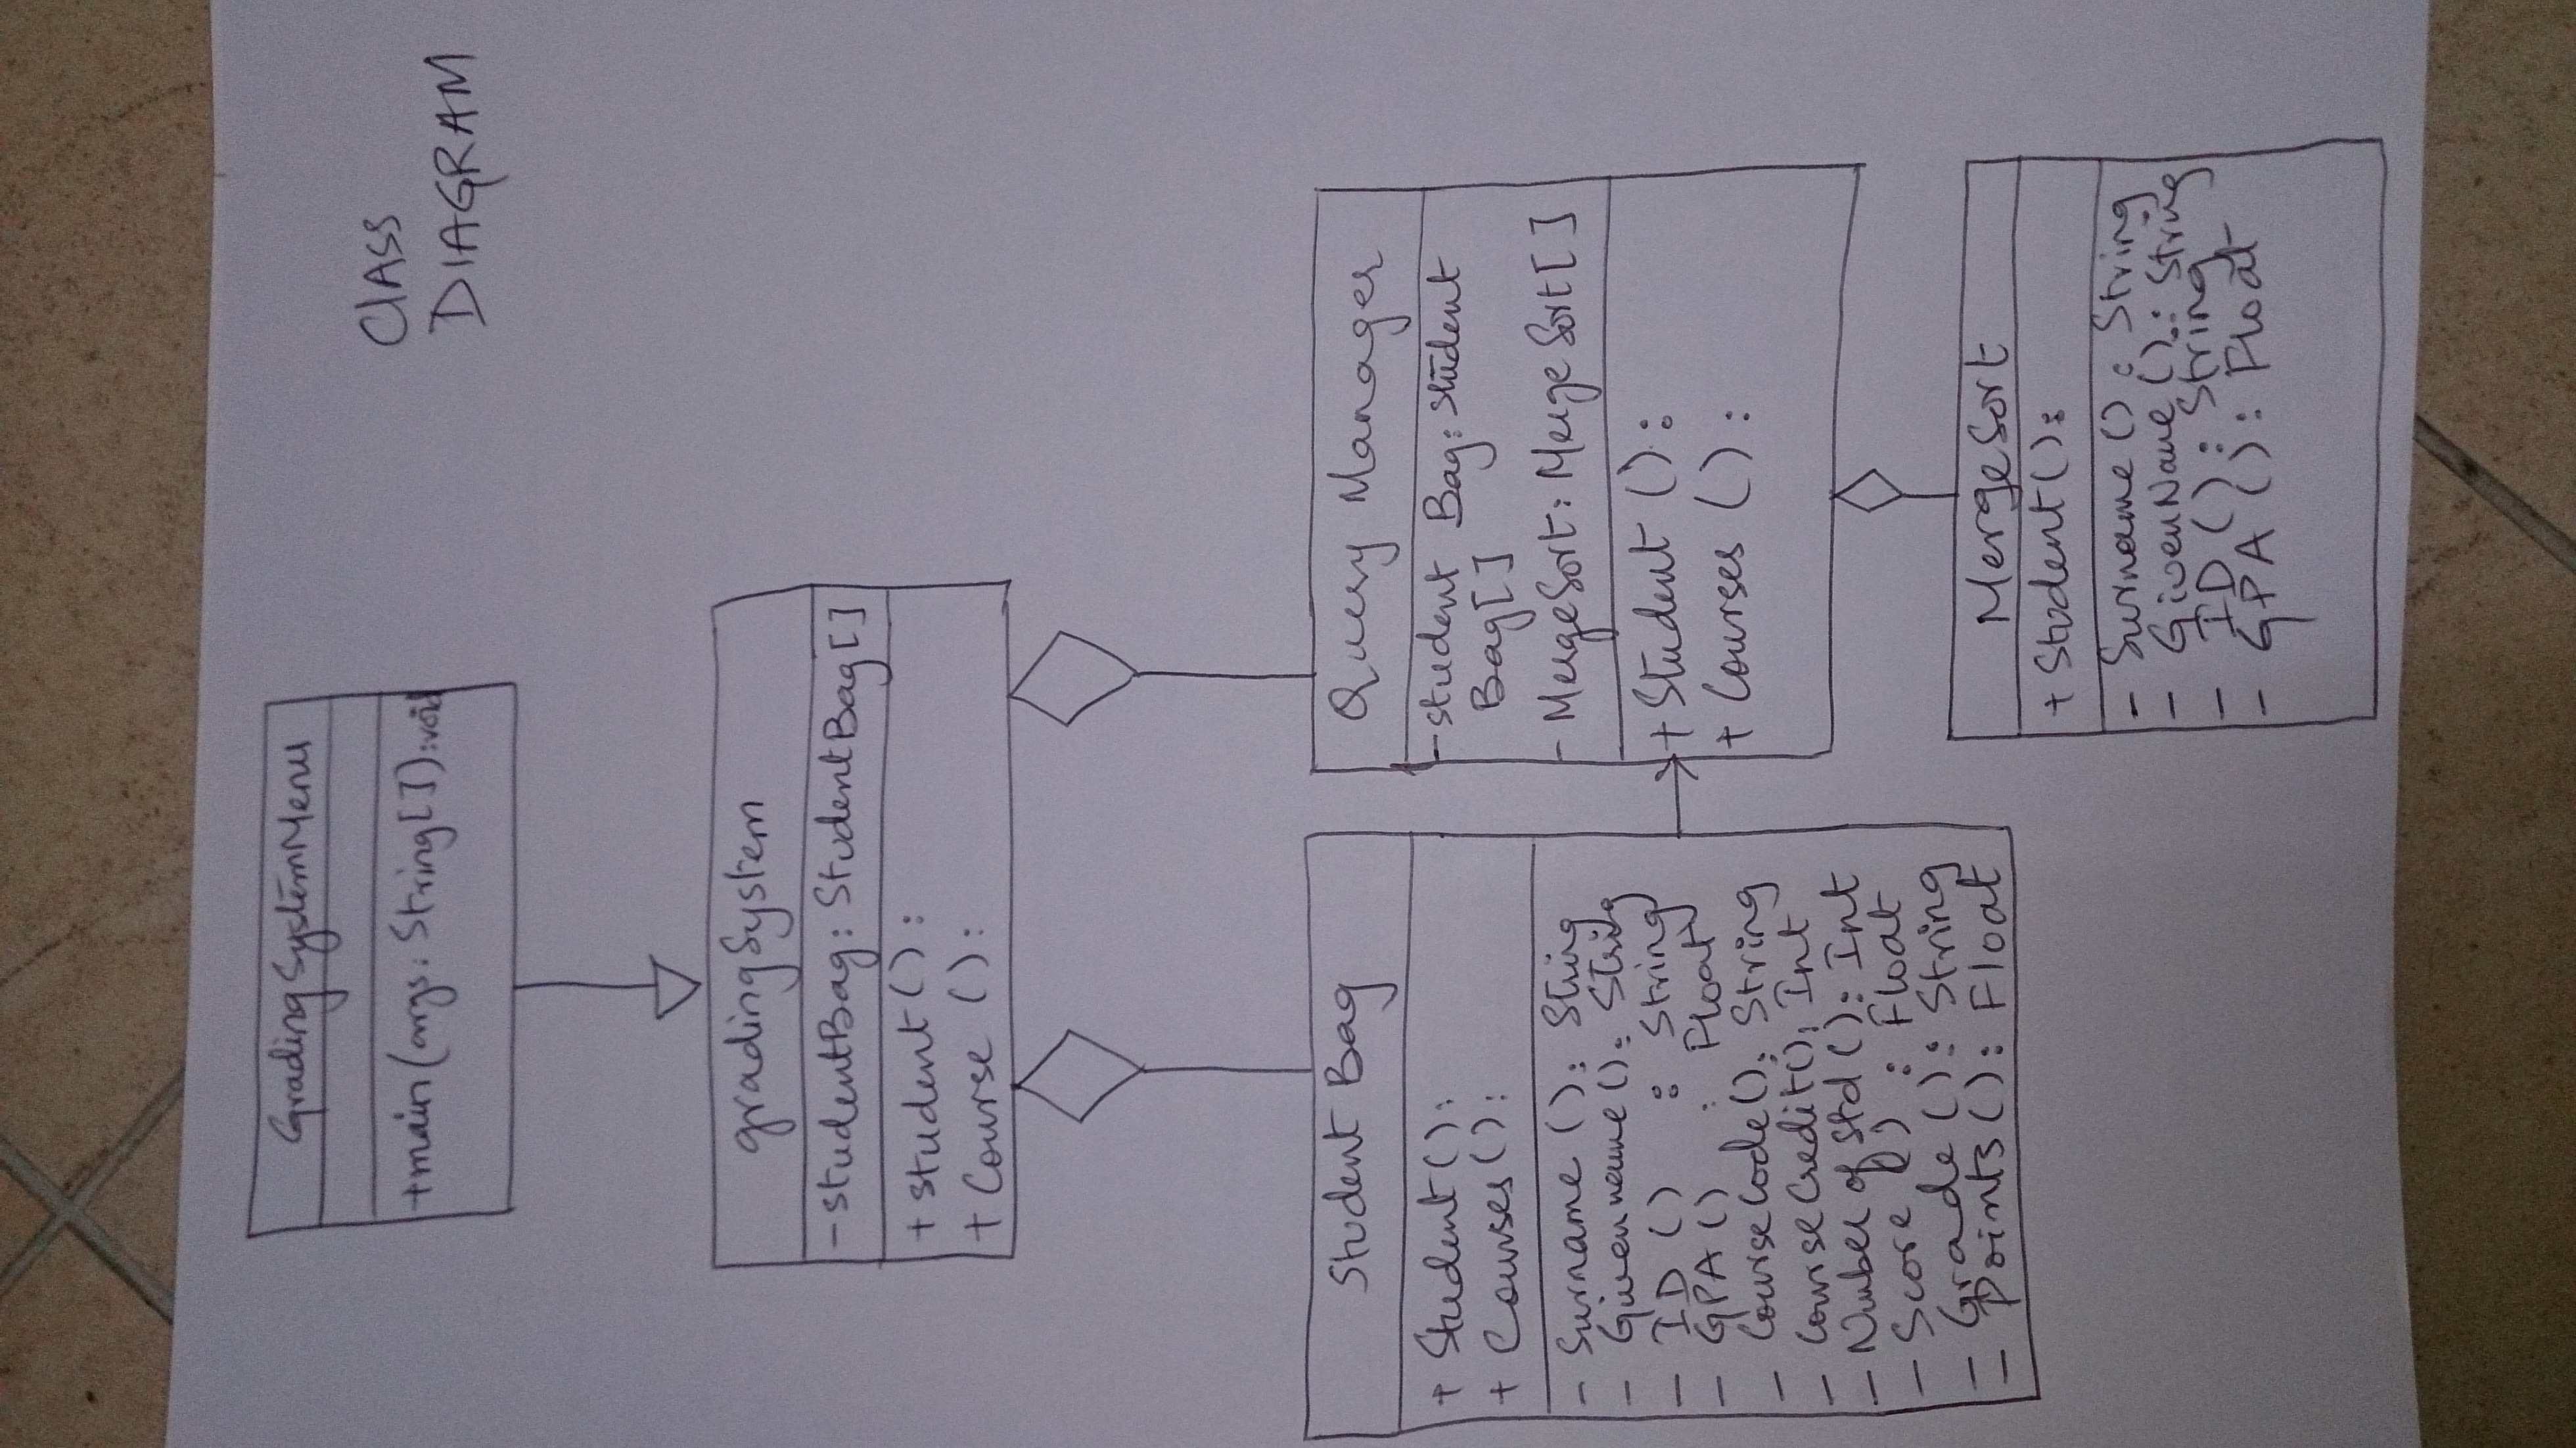 GradingSystemMenu
+main(args: String[]):void
CLASS
DIAGRAM
gradingSystem
-studentBag: StudentBag[]
+ student():
+ Course ():
Student Bag
+ Student():
+ Courses():
- Surname (): String
- Givenname(): String
- ID () : String
- GPA () : Float
- CourseCode(): String
- CourseCredit(): Int
- Number of Std (): Int
- Score () : Float
- Grade (): String
- Points(): Float
Query Manager
-student Bag: student
Bag[]
- MergeSort: Merge Sort[]
+ Student ():
+ Courses ():
MergeSort
+ Student():
- Surname () : String
- GivenName () : String
- ID () : String
- GPA () : Float